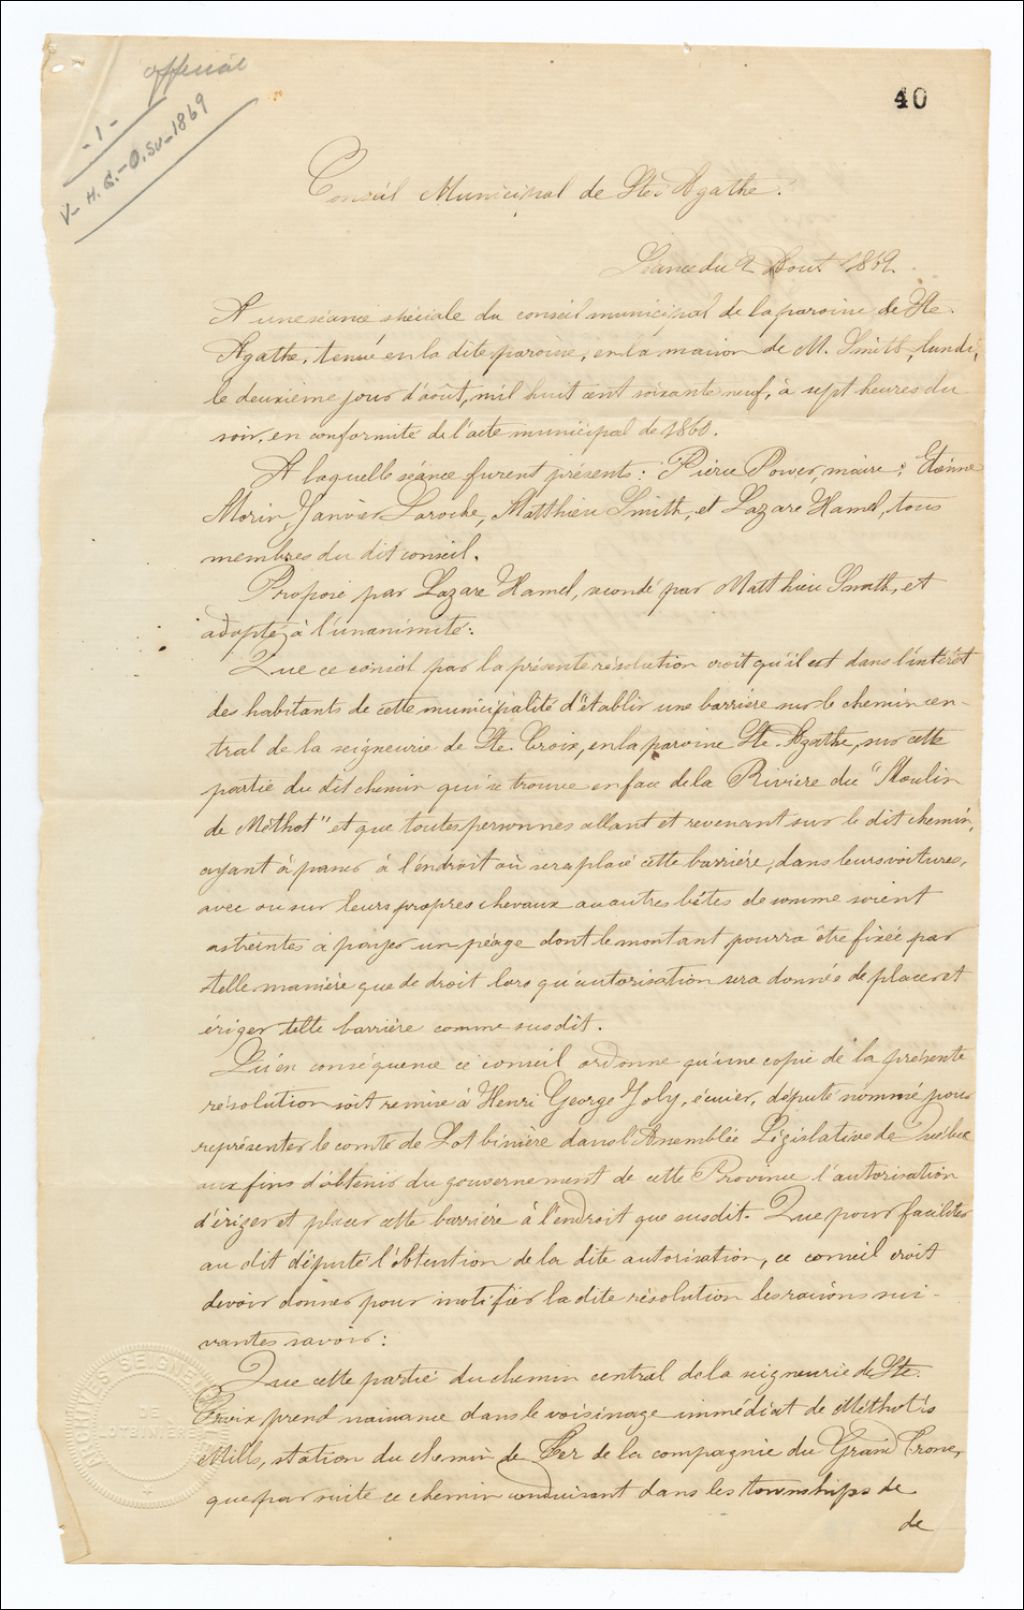 official
- 1 -
V-H.G.-O.Su-1869
40
Conseil Municipal de Ste. Agathe.
Séance du 2 Aout 1869.
A une séance spéciale du conseil municipal de la paroisse de Ste.
Agathe, tenue en la dite paroisse, en la maison de M. Smith, lundi,
le deuxième jour d'août, mil huit cent soixante neuf, à sept heures du
soir, en conformité de l'acte municipal de 1860.
A laquelle séance furent présents: Pierre Power, maire; Etienne
Morin, Janvier Laroche, Matthieu Smith, et Lazare Hamel, tous
membres du dit conseil.
Proposé par Lazare Hamel, secondé par Matthieu Smith, et
adopté à l'unanimité:
Que ce conseil par la présente résolution croit qu'il est dans l'intérêt
des habitants de cette municipalité d'établir une barrière sur le chemin cen-
tral de la seigneurie de Ste. Croix, en la paroisse Ste. Agathe, sur cette
partie du dit chemin qui se trouve en face de la Rivière du "Moulin
de Méthot" et que toutes personnes allant et revenant sur le dit chemin,
ayant à passer à l'endroit où sera placé cette barrière, dans leurs voitures,
avec ou sur leurs propres chevaux ou autres bêtes de somme soient
astreintes à payer un péage dont le montant pourra être fixée par
telle manière que de droit lors qu'autorisation sera donnée de placer et
ériger telle barrière comme susdit.
Qu'en conséquence ce conseil ordonne qu'une copie de la présente
résolution soit remise à Henri George Joly, écuier, député nommé pour
représenter le comté de Lotbinière dans l'Assemblée Législative de Québec
aux fins d'obtenir du gouvernement de cette Province l'autorisation
d'ériger et placer cette barrière à l'endroit que susdit. Que pour faciliter
au dit député l'obtention de la dite autorisation, ce conseil croit
devoir donner pour motifier la dite résolution les raisons sui-
vantes savoir:
Que cette partie du chemin central de la seigneurie de Ste.
Croix prend naissance dans le voisinage immédiat de Methot's
Mills, station du chemin de Fer de la compagnie du Grand Tronc,
que par suite ce chemin conduisant dans les townships de
de
ARCHIVES SEIGNEURIALES
DE
LOTBINIERE